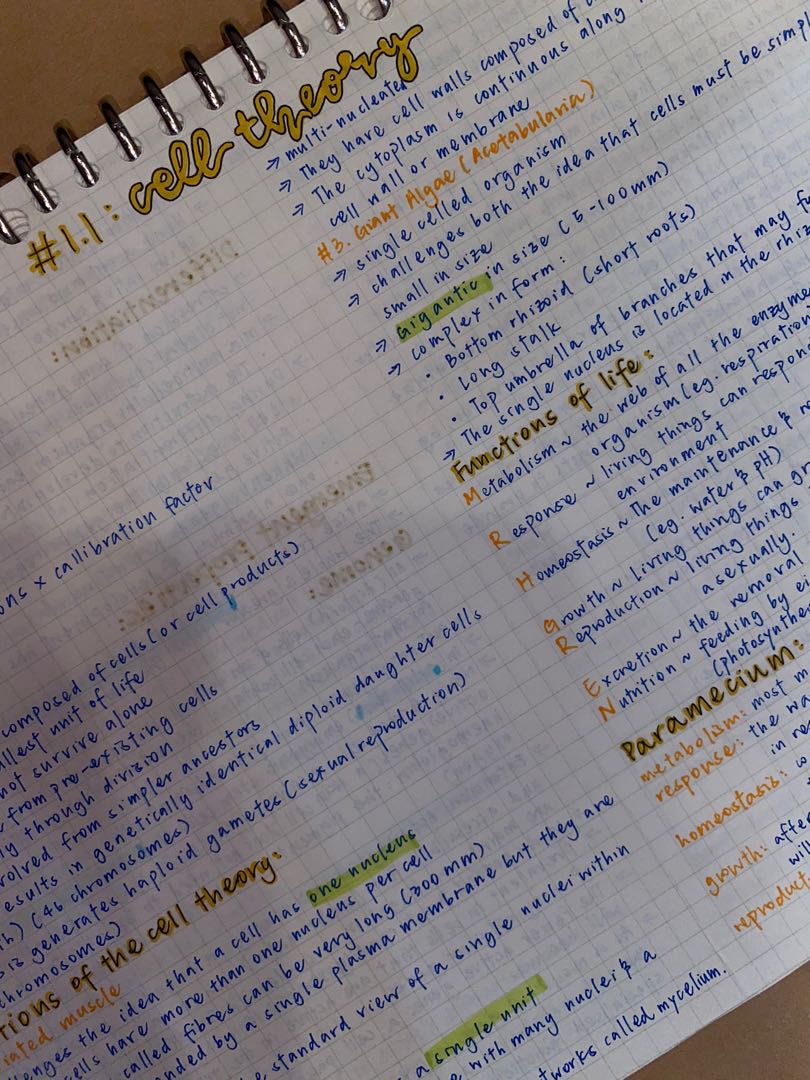 #1.1: cell theory
ons × callibration factor
composed of cells (or cell products)
allest unit of life
not survive alone
from pre-existing cells
ly through division
volved from simpler ancestors
esults in genetically identical diploid daughter cells
(46 chromosomes)
is generates haploid gametes (sexual reproduction)
chromosomes)
tions of the cell theory:
iated muscle
enges the idea that a cell has one nucleus
cells have more than one nucleus per cell
called fibres can be very long (300 mm)
nded by a single plasma membrane but they are
e standard view of a single nuclei within
a single unit
e with many nuclei & a
tworks called mycelium.
→ multi-nucleated
→ They have cell walls composed of
→ The cytoplasm is continuous along
cell wall or membrane
#3. Giant Algae (Acetabularia)
→ single celled organism
→ challenges both the idea that cells must be simpl
small in size
→ Gigantic in size (5-100mm)
→ complex in form:
• Bottom rhizoid (short roots)
• Long stalk
• Top umbrella of branches that may fu
→ The single nucleus is located in the rhiz
Functions of life:
Metabolism ~ the web of all the enzyme
organism (eg. respiration
Response ~ living things can respon
environment
Homeostasis ~ The maintenance & r
(eg. water & pH)
Growth ~ living things can gr
Reproduction ~ living things
asexually.
Excretion ~ the removal
Nutrition ~ feeding by ei
(photosynthe
Paramecium:
metabolism: most m
response: the wa
in re
homeostasis: co
growth: afte
will
reproduct